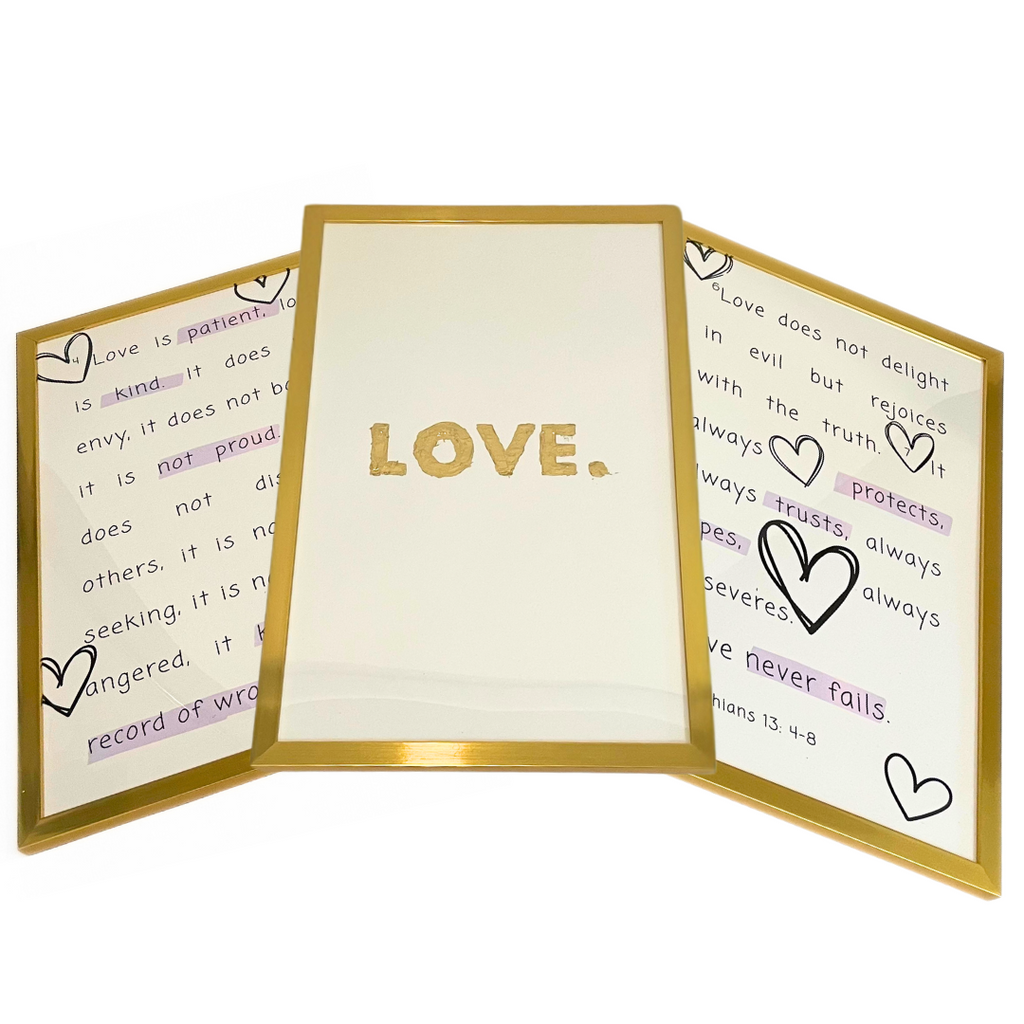 4 Love is patient, lo
is kind. It does
envy, it does not bo
it is not proud.
does not dis
others, it is no
seeking, it is n
angered, it k
record of wro
LOVE.
6 Love does not delight
in evil but rejoices
with the truth. 7 It
always protects,
ways trusts, always
pes, always
severes.
ve never fails.
hians 13: 4-8